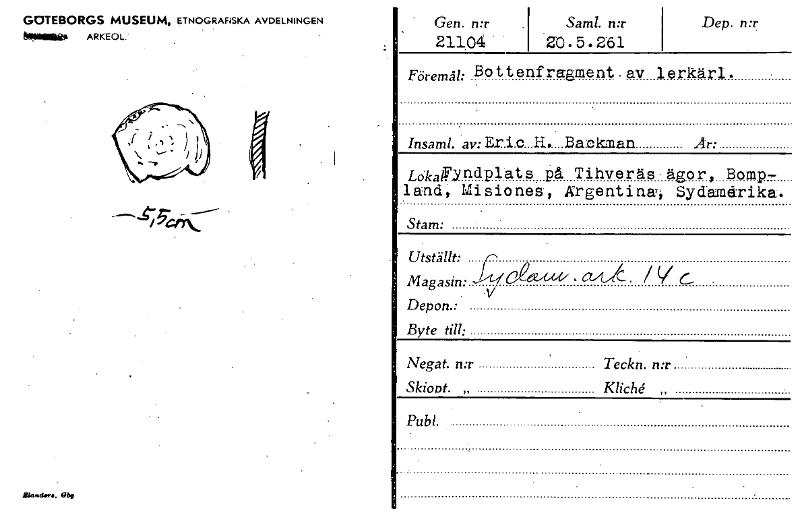 GÖTEBORGS MUSEUM, ETNOGRAFISKA AVDELNINGEN
ARKEOL.
5,5cm
Elanders, Gbg
Gen. n:r Saml. n:r Dep. n:r
21104 20.5.261
Föremål: Bottenfragment av lerkärl.
Insaml. av: Eric H. Backman År:
Lokal Fyndplats på Tihveräs ägor, Bomp-
land, Misiones, Argentina, Sydamerika.
Stam:
Utställt:
Magasin: Sydam. ark. 14 c
Depon.:
Byte till:
Negat. n:r Teckn. n:r
Skiopt. „ Kliché „
Publ.